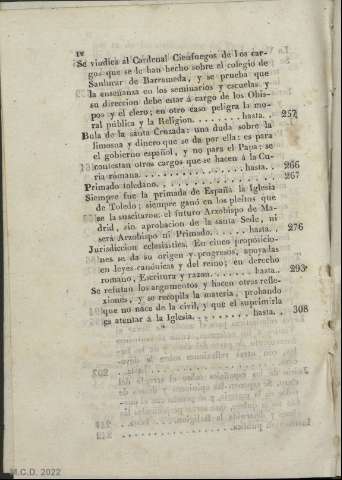 IV
Se vindica al Cardenal Cienfuegos de los car-
gos que se le han hecho sobre el colegio de
Sanlucar de Barrameda, y se prueba que
la enseñanza en los seminarios y escuelas y
su direccion debe estar á cargo de los Obis-
pos y el clero; en otro caso peligra la mo-
ral pública y la Religion. . . . . . . . hasta. . 257
Bula de la santa Cruzada: una duda sobre la
limosna y dinero que se da por ella: es para
el gobierno español, y no para el Papa: se
contestan otros cargos que se hacen á la Cu-
ria romana. . . . . . . . . . . . . . . hasta. . 266
Primado toledano. . . . . . . . . . . . . . . . 267
Siempre fue la primada de España la Iglesia
de Toledo; siempre ganó en los pleitos que
se la suscitaron: el futuro Arzobispo de Ma-
drid, sin aprobacion de la santa Sede, ni
será Arzobispo ni Primado. . . . . . hasta. . 276
Jurisdiccion eclesiastica. En cinco proposicio-
nes se da su origen y progresos, apoyadas
en leyes canónicas y del reino; en derecho
romano, Escritura y razon. . . . . . . hasta. . 293
Se refutan los argumentos y hacen otras refle-
xiones, y se recopila la materia, probando
que no nace de la civil, y que el suprimirla
es atentar á la Iglesia. . . . . . . . . hasta. . 308
M.C.D. 2022